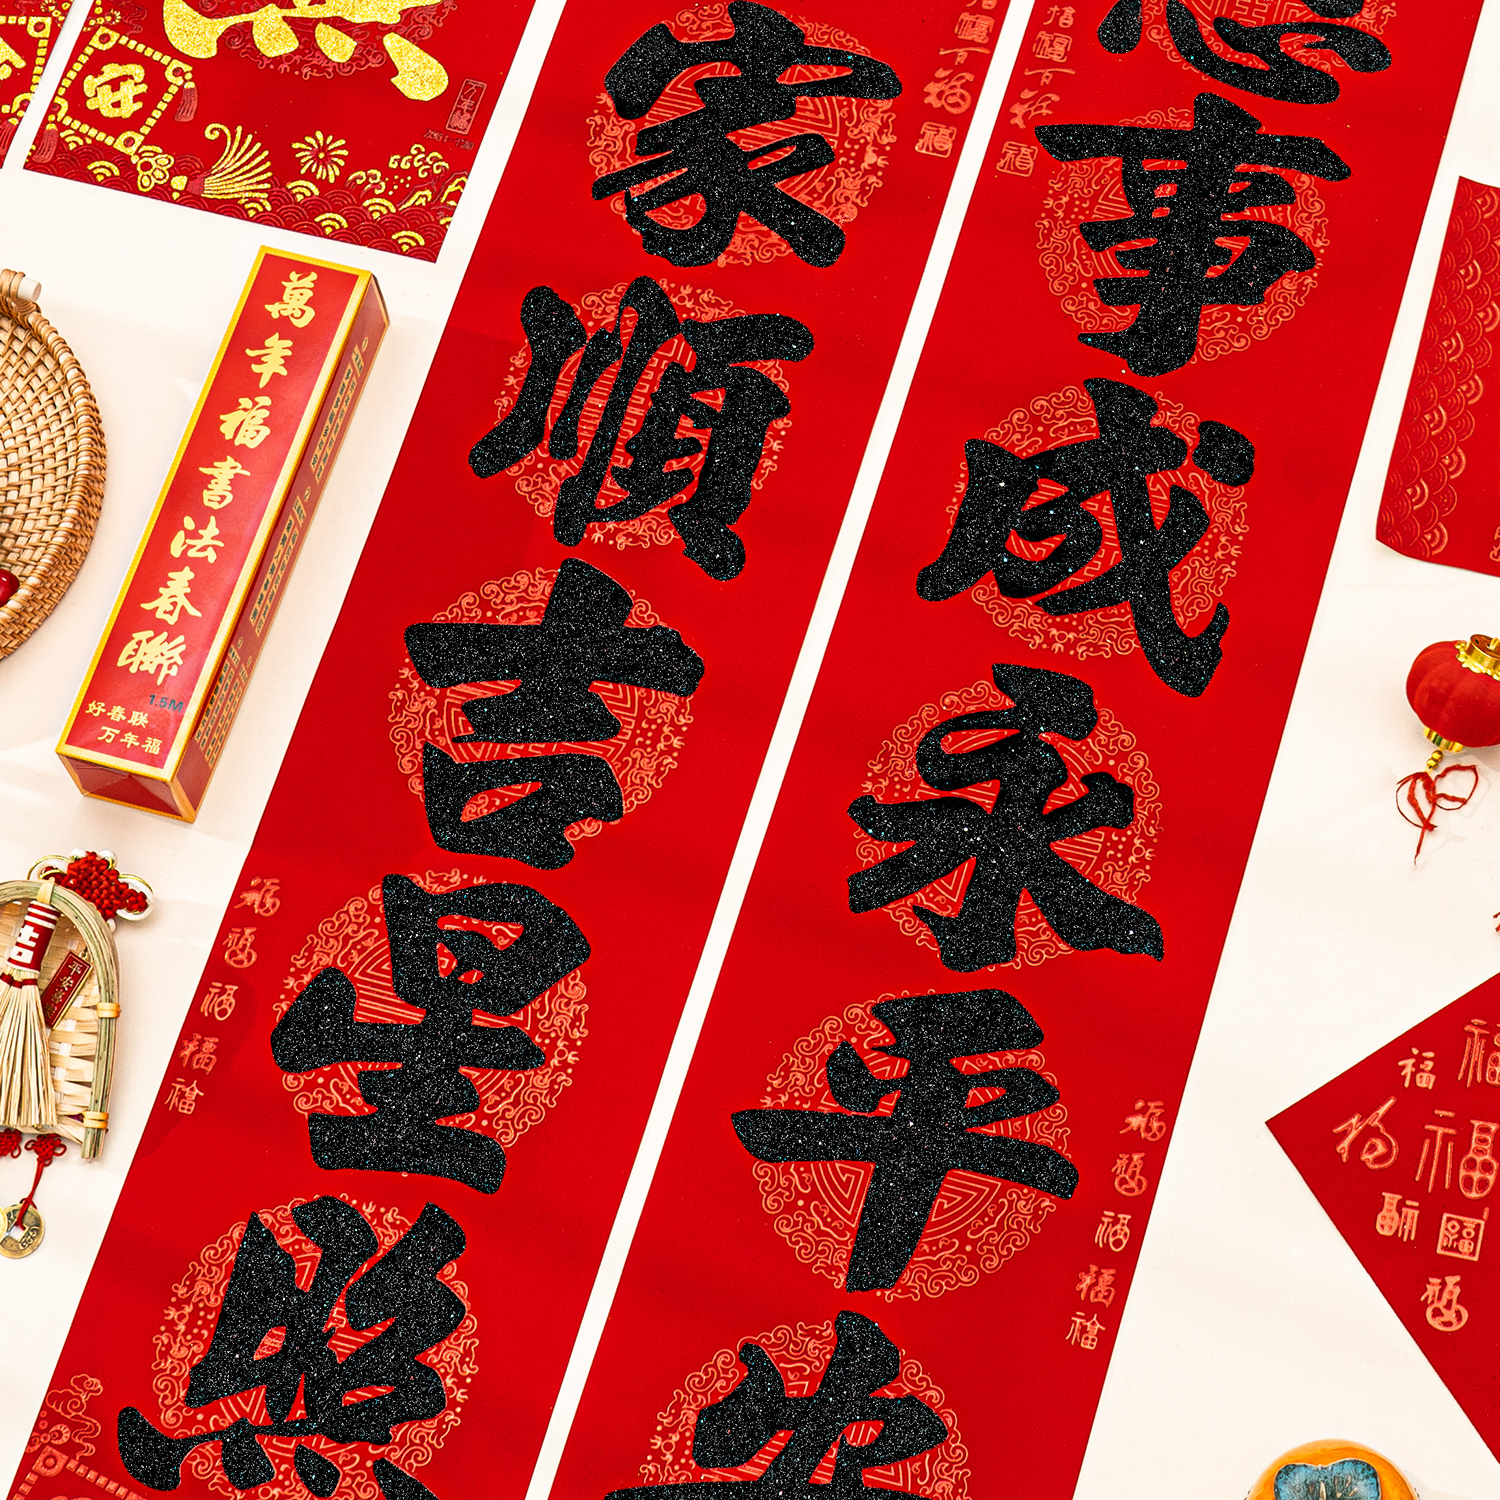 事成永平安
家順吉星照
萬年福書法春聯
1.5M
好春联
万年福
安
平安喜
福福福福福
福福福福福
福福福福福福福